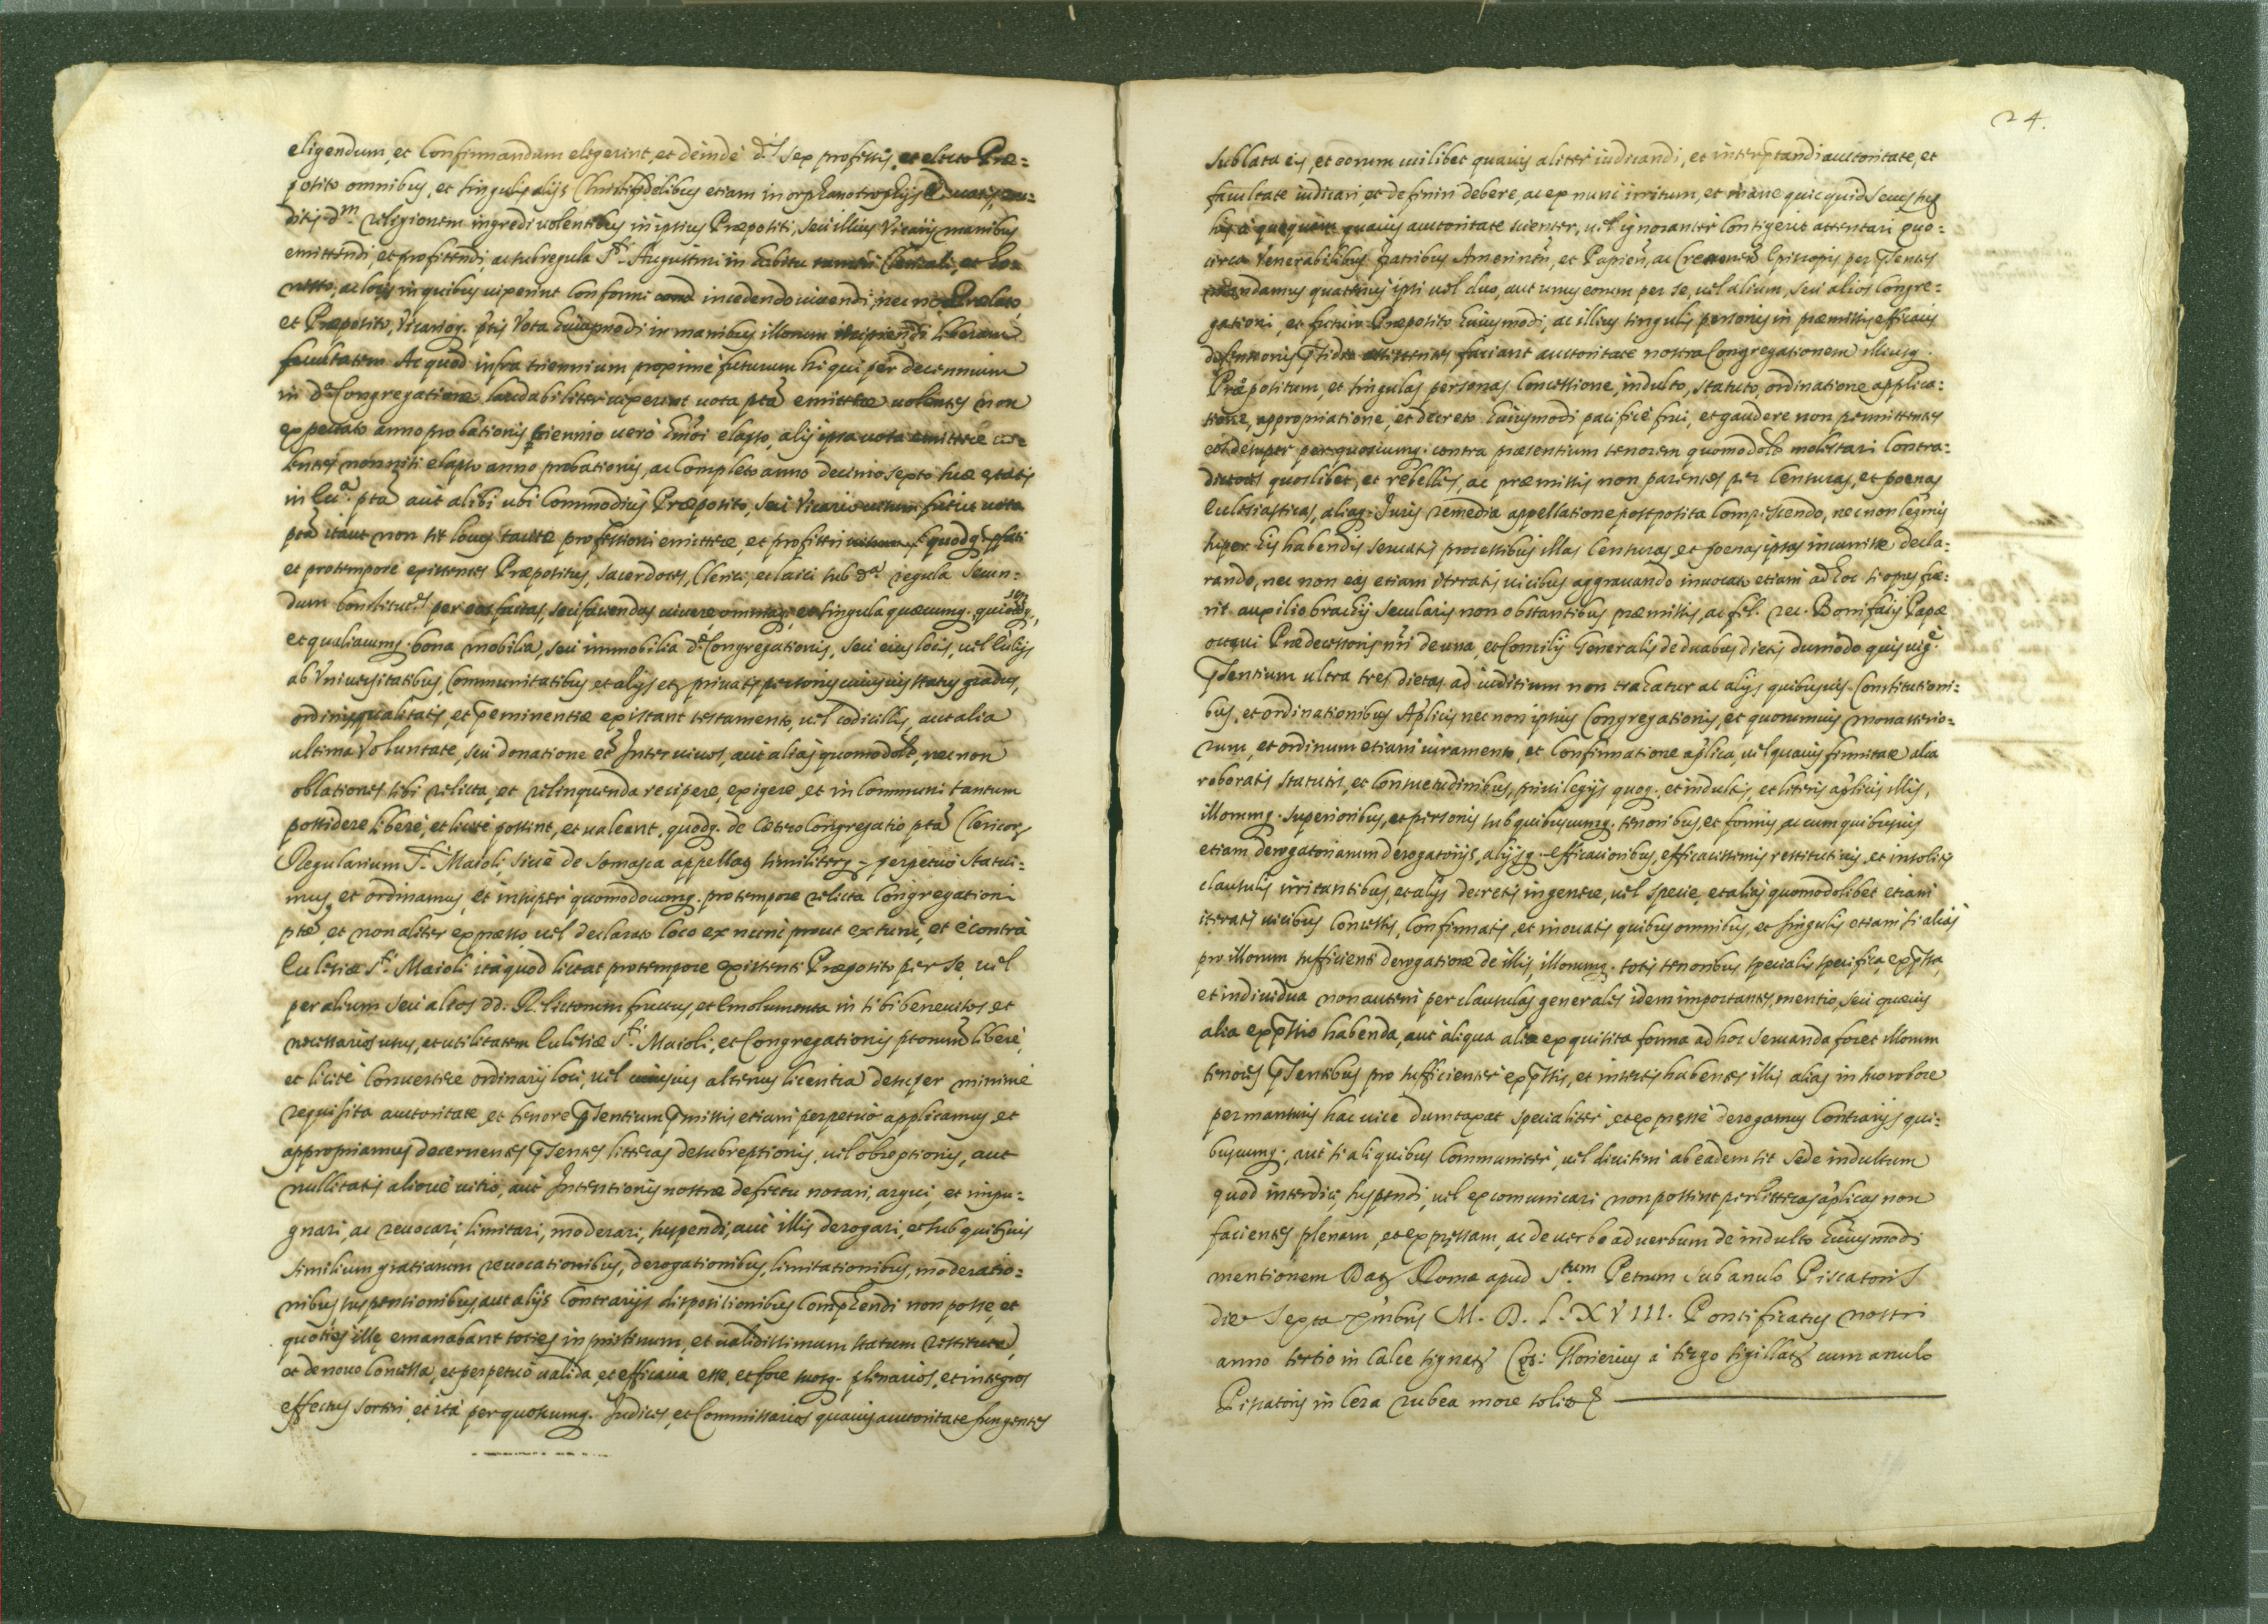 eligendum, et Confirmandum elegerint, et deinde d.s sex professis, et electo Præ=
posito omnibus, et singulis alijs Christifidelibus etiam in orphanotrophijs
d.m religionem ingredi uolentibus in ipsius Præpositi, seu illius Vicarij manibus
emittendi, et profitendi, ac sub regula S.ti Augustini in habitu tamen Clericali, et ho=
nesto, ac locis in quibus uixerint conformi incedendo uiuendi, nec non Prælato,
et Præposito, Vicarioq. ptis Vota huiusmodi in manibus illorum recipiendi liberam
facultatem Ac quod infra triennium proximè futurum hi qui per decennium
in d.a Congregatione laudabiliter uixerunt uota pta emittere uolentes non
expectato anno probationis triennio uerò hmoi elapso, alij ipsa uota emittere uo=
lentes non nisi elapso anno probationis, ac completo anno decimo sexto suæ ętatis
in Ecc.a pta aut alibi ubi Commodius Præposito, seu Vicario uisum fuerit uota
pta itaut non sit locus tacitæ professioni emittere, et profiteri quodq. psati
et protempore existentes Præpositus, sacerdotes, Clerici, et laici sub d.a regula Secun=
dum constitut.es per eos factas, seu faciendas uiuere, omniaq. et singula quæcunq.
et qualiacunq. bona mobilia, seu immobilia d.æ Congregationis, seu eius locis, uel Ecclijs
ab Vniuersitatibus, Communitatibus et alijs et priuatis personis cuiusuis status gradus,
ordinis, qualitatis, et p̄eminentiæ existant testamento, uel codicillis, aut alia
ultima Voluntate, seu donatione et Inter uiuos, aut aliàs quomodolt, nec non
oblationes sibi relicta, et relinquenda recipere, exigere, et in Communi tantum
possidere liberè, et licitè possint, et ualeant, quodq. de Cætero Congregatio pta Clericor,
Regularium S.ti Maioli, siuè de Somasca appellat similiter perpetuò statui=
mus, et ordinamus, et insuper quomodocunq. pro tempore relicta Congregationi
ptæ, et non aliter expresso, uel declarato loco ex nunc prout ex tunc, et è contrà
Ecclesiæ S.ti Maioli ita quod liceat protempore existenti Præposito per se, uel
per alium seu alios dd. Relictorum fructus, et Emolumenta in sibi beneuisos et
necessarios usus, et utilitatem Ecclesiæ S.ti Maioli, et Congregationis ptorum liberè,
et licitè Conuertere ordinarij loci, uel cuiusuis alterius licentia desuper minimè
requisita auctoritate, et tenore p̄sentium p̄missis etiam perpetuò applicamus et
appropriamus decernentes p̄sentes litteras de subreptionis, uel obreptionis, aut
nullitatis aliouè uitio, aut Intentionis nostræ defectu notari, argui, et impu=
gnari, ac reuocari, limitari, moderari, suspendi, aut illis derogari, et sub quibusuis
similium gratiarum reuocationibus, derogationibus, limitationibus, moderatio=
nibus, suspensionibus, aut alijs Contrarijs dispositionibus Comp̄hendi non posse, et
quoties illę emanabunt toties in pristinum, et ualidissimum statum restituta,
et de nouo concessa, et perpetuò ualida, et efficacia esse, et fore suosq. plenarios, et integros
effectus sortiri, et ità per quoscunq. Judices, et Commissarios quauis auctoritate fungentes
24.
sublata eis, et eorum cuilibet quauis aliter iudicandi, et interp̄tandi auctoritate, et
facultate iudicari, et definiri debere, ac ex nunc irritum, et inane quicquid secus
his à quoquam quauis auctoritate scienter, uel ignoranter Contigerit attentari quo=
circa Venerabilibus fratribus Amerinen̄, et Papien̄, ac Cremonen̄ Episcopis per p̄sentes
mandamus quatenus ipsi uel duo, aut unus eorum per se, uel alium, seu alios Congre=
gationi, et futuro Præposito huiusmodi, ac illius singulis personis in præmissis efficacis
defensionis p̄sidio assistentes faciant auctoritate nostra Congregationem illiusq.
Præpositum, et singulas personas Concessione, indulto, statuto, ordinatione applica=
tione, appropriatione, et decreto huiusmodi pacificè frui, et gaudere non permittentes
eos desuper per quoscunq. contra præsentium tenorem quomodolt molestari Contra=
dictores quoslibet, et rebelles, ac præmissis non parentes per Censuras, et poenas
Ecclesiasticas, aliaq. Juris remedia appellatione postposita compescendo, nec non legitimis
super his habendis seruatis processibus illas Censuras, et poenas ipsas incurrisse decla=
rando, nec non eas etiam iteratis uicibus aggrauando inuocato etiam ad hoc si opus fue=
rit auxilio brachij secularis non obstantibus præmissis, ac fęl. rec. Bonifacij Papæ
octaui Prædecessoris nri de una, et Concilij Generalis de duabus dietis dummodo quis uig.e
p̄sentium ultra tres dietas ad iuditium non trahatur ac alijs quibusuis Constitutioni=
bus, et ordinationibus Aplicis nec non ipsius Congregationis, et quorumuis monasterio=
rum, et ordinum etiam iuramento, et Confirmatione aplica, uel quauis firmitate alia
roboratis statutis, et Consuetudinibus, priuilegijs quoq. et indultis, et literis aplicis illis,
illorumq. superioribus, et personis sub quibuscunq. tenoribus, et formis ac cum quibusuis
etiam derogatoriarum derogatorijs, alijsq. efficacioribus, efficacissimis restitutiuis, et insolitis
clausulis irritantibus, et alijs decretis in genere, uel specie, et aliàs quomodolibet etiam
iteratis uicibus Concessis, Confirmatis, et inouatis quibus omnibus, et singulis etiam si aliàs
pro illorum sufficienti derogatione de illis, illorumq. totis tenoribus specialis specifica, exp̄ssa,
et indiuidua non autem per clausulas generales idem importantes, mentio, seu quæuis
alia exp̄ssio habenda, aut aliqua alia exquisita forma ad hoc seruanda foret illorum
tenores p̄sentibus pro sufficienter exp̄ssis, et insertis habentes illis alias in suo robore
permansuris hac uice dumtaxat specialiter, et expressè derogamus Contrarijs qui=
buscunq., aut si aliquibus Communiter, uel diuisim ab eadem sit Sede indultum
quod interdici, suspendi, uel excomunicari non possint per litteras aplicas non
facientes plenam, et expressam, ac de uerbo ad uerbum de indulto huiusmodi
mentionem Dat Romæ apud S.tum Petrum sub anulo Piscatoris
die sexta Xmbris M. D. L. X V III. Pontificatus nostri
anno tertio in Calce signat Cęs: Glorierius à tergo sigillat cum anulo
Piscatoris in Cera rubea more solito